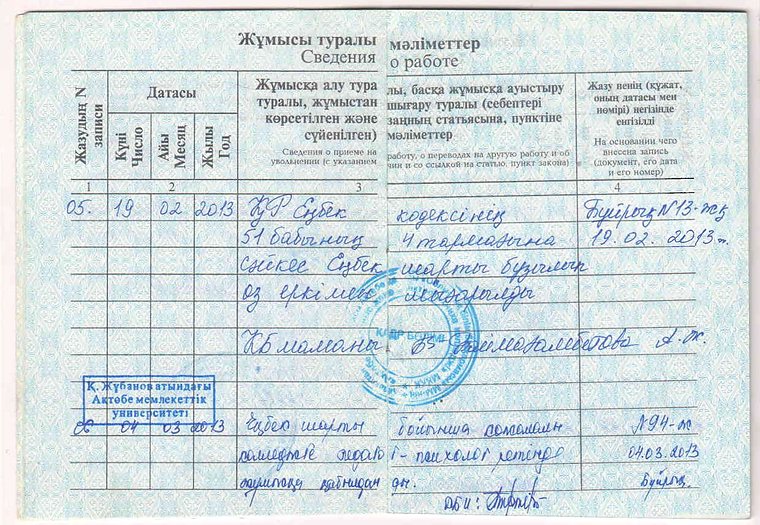 Жұмысы туралы мәліметтер
Сведения о работе
Жазудың N
записи
Датасы
Күні
Число
Айы
Месяц
Жылы
Год
Жұмысқа алу тура лы, басқа жұмысқа ауыстыру
туралы, жұмыстан шығару туралы (себептері
көрсетілген және заңның статьясына, пунктіне
сүйенілген) мәліметтер
Сведения о приеме на работу, о переводах на другую работу и об
увольнении (с указанием причин и со ссылкой на статью, пункт закона)
Жазу ненің (құжат,
оның датасы мен
нөмірі) негізінде
енгізілді
На основании чего
внесена запись
(документ, его дата
и его номер)
1 2 3 4
05. 19 02 2013 ҚР Еңбек кодексінің Бұйрық N13-жқ
51 бабының 4 тармағына 19.02.2013ж.
сәйкес Еңбек шарты бұзылып
өз еркімен шығарылды
КАДР БӨЛІМІ
КБ маманы А.Ж.
Қ. Жұбанов атындағы
Ақтөбе мемлекеттік
университеті
06 04 03 2013 Еңбек шарты бойынша N94-ж
колледжге педагог-психолог ретінде 04.03.2013
жұмысқа қабылданды. Бұйрық